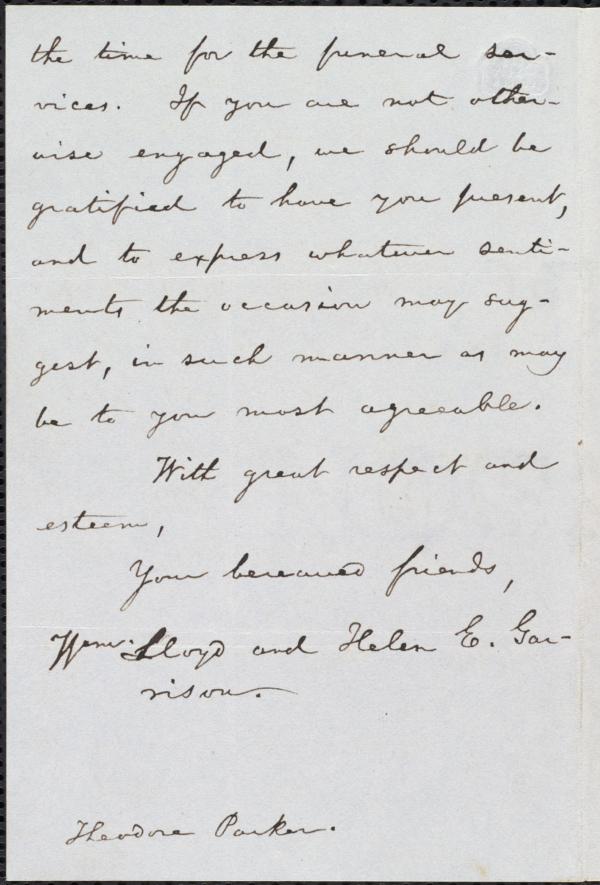 the time for the funeral ser-
vices. If you are not other-
wise engaged, we should be
gratified to have you present,
and to express whatever senti-
ments the occasion may sug-
gest, in such manner as may
be to you most agreeable.
With great respect and
esteem,
Your bereaved friends,
Wm. Lloyd and Helen E. Gar-
rison.
Theodore Parker.